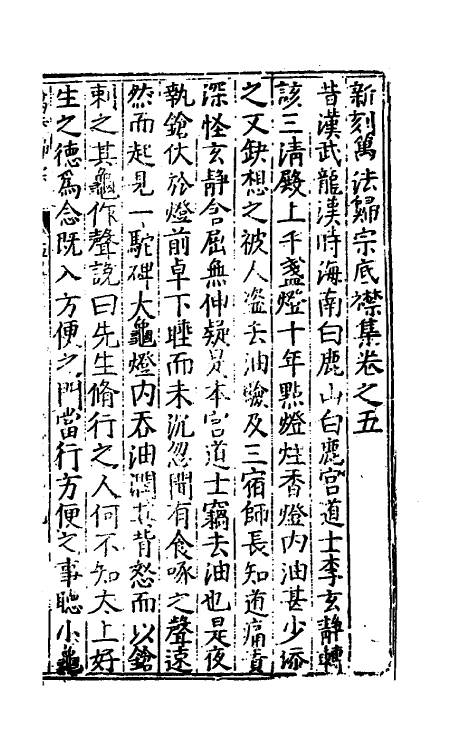 新刻萬法歸宗底襟集卷之五
昔漢武龍漢時海南白鹿山白鹿宮道士李玄靜轉
該三清殿上千盞燈十年點燈炷香燈內油甚少添
之又缺想之被人盜去油驗及三宿師長知道痛責
深怪玄靜含屈無伸疑是本宮道士竊去油也是夜
執鎗伏於燈前卓下睡而未沉忽聞有食啄之聲遠
然而起見一駝碑大龜燈內吞油潤其背怒而以鎗
刺之其龜作聲說曰先生脩行之人何不知太上好
生之德爲念既入方便之門當行方便之事聽小龜